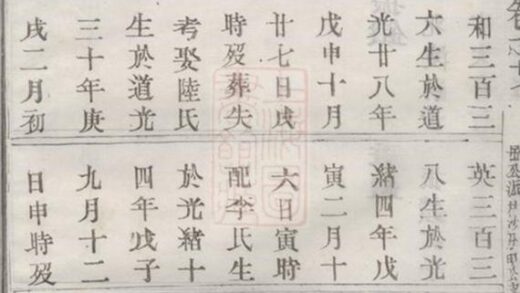 和三百三
六生於道
光廿八年
戊申十月
廿七日戌
時歿葬失
考娶陸氏
生於道光
三十年庚
戌二月初
英三百三
八生於光
緒四年戊
寅二月十
六日寅時
配李氏生
於光緒十
四年戊子
九月十二
日申時歿